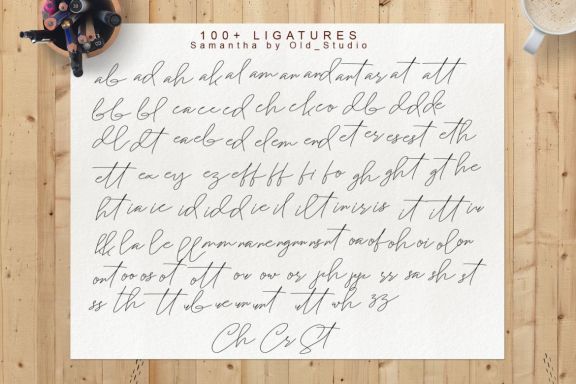 100+ LIGATURES
Samantha by Old_Studio
ab ad ah ak al am an and ant ar at att
bb bl ca ce ed ch ck co db dd de
dl dt ea eb ed el em end et er es est eth
ett ex ey ez eff ff fi fo gh ght gt he
ht ia ie id idd ie il ilt in ir is it itt iu
kk la le ll mm na ne ng nn ns nt oa of oh oi ol on
ont oo os ot ott ou ow or ph pp rr sa sh st
ss th tt ub ue um unt utt wh zz
Ch Cr St